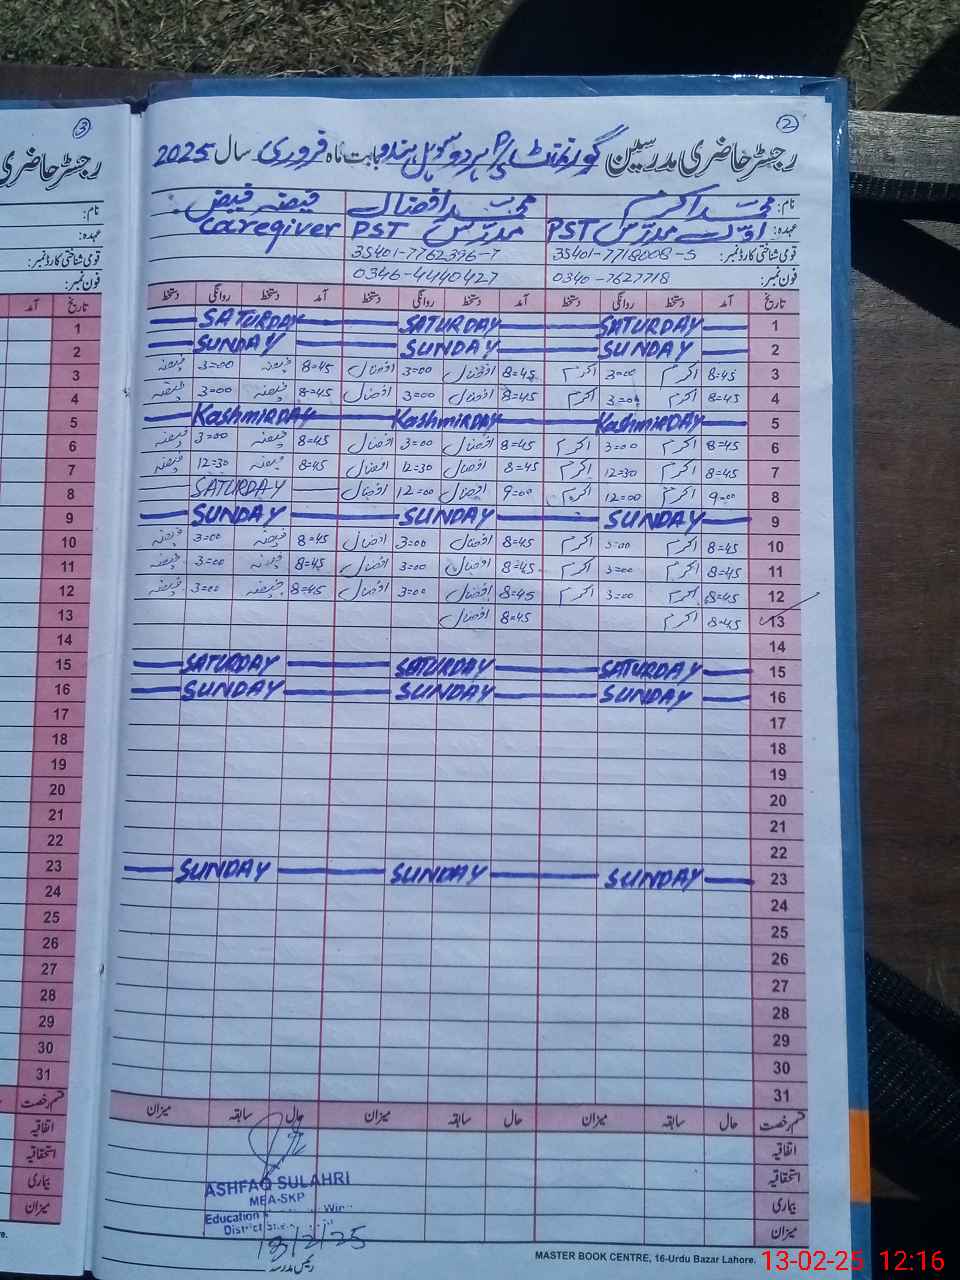 ③ ②
رجسٹر حاضری مدرسین گورنمنٹ بابت ماہ فروری سال 2025
نام: محمد اکرم محمد افضال فیضہ فیض
عہدہ: PST مدرس PST Caregiver
قومی شناختی کارڈ نمبر: 35401-7718008-5 35401-7762396-7
فون نمبر: 0340-7627718 0346-4440427
تاریخ آمد دستخط روانگی دستخط آمد دستخط روانگی دستخط آمد دستخط روانگی دستخط
1 SATURDAY SATURDAY SATURDAY
2 SUNDAY SUNDAY SUNDAY
3 8=45 اکرم 3=00 اکرم 8=45 افضال 3=00 افضال 8=45 فیضہ 3=00 فیضہ
4 8=45 اکرم 3=00 اکرم 8=45 افضال 3=00 افضال 8=45 فیضہ 3=00 فیضہ
5 KashmirDAY KashmirDAY KashmirDAY
6 8=45 اکرم 3=00 اکرم 8=45 افضال 3=00 افضال 8=45 فیضہ 3=00 فیضہ
7 8=45 اکرم 12=30 اکرم 8=45 افضال 12=30 افضال 8=45 فیضہ 12=30 فیضہ
8 9=00 اکرم 12=00 اکرم 9=00 افضال 12=00 افضال SATURDAY
9 SUNDAY SUNDAY SUNDAY
10 8=45 اکرم 3=00 اکرم 8=45 افضال 3=00 افضال 8=45 فیضہ 3=00 فیضہ
11 8=45 اکرم 3=00 اکرم 8=45 افضال 3=00 افضال 8=45 فیضہ 3=00 فیضہ
12 8=45 اکرم 3=00 اکرم 8=45 افضال 3=00 افضال 8=45 فیضہ 3=00 فیضہ
13 8=45 اکرم 8=45 افضال
14
15 SATURDAY SATURDAY SATURDAY
16 SUNDAY SUNDAY SUNDAY
17
18
19
20
21
22
23 SUNDAY SUNDAY SUNDAY
24
25
26
27
28
29
30
31
قسم رخصت حال سابقہ میزان حال سابقہ میزان حال سابقہ میزان
اتفاقیہ
استحقاقیہ
بیماری
میزان
ASHFAQ SULAHRI
MEA-SKP
Education
District
13/2/25
رئیس مدرسہ
MASTER BOOK CENTRE, 16-Urdu Bazar Lahore.
13-02-25 12:16